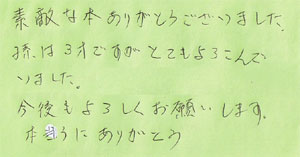 素敵な本ありがとうございました。
孫は3才ですがとてもよろこんで
いました。
今後もよろしくお願いします。
本当うにありがとう